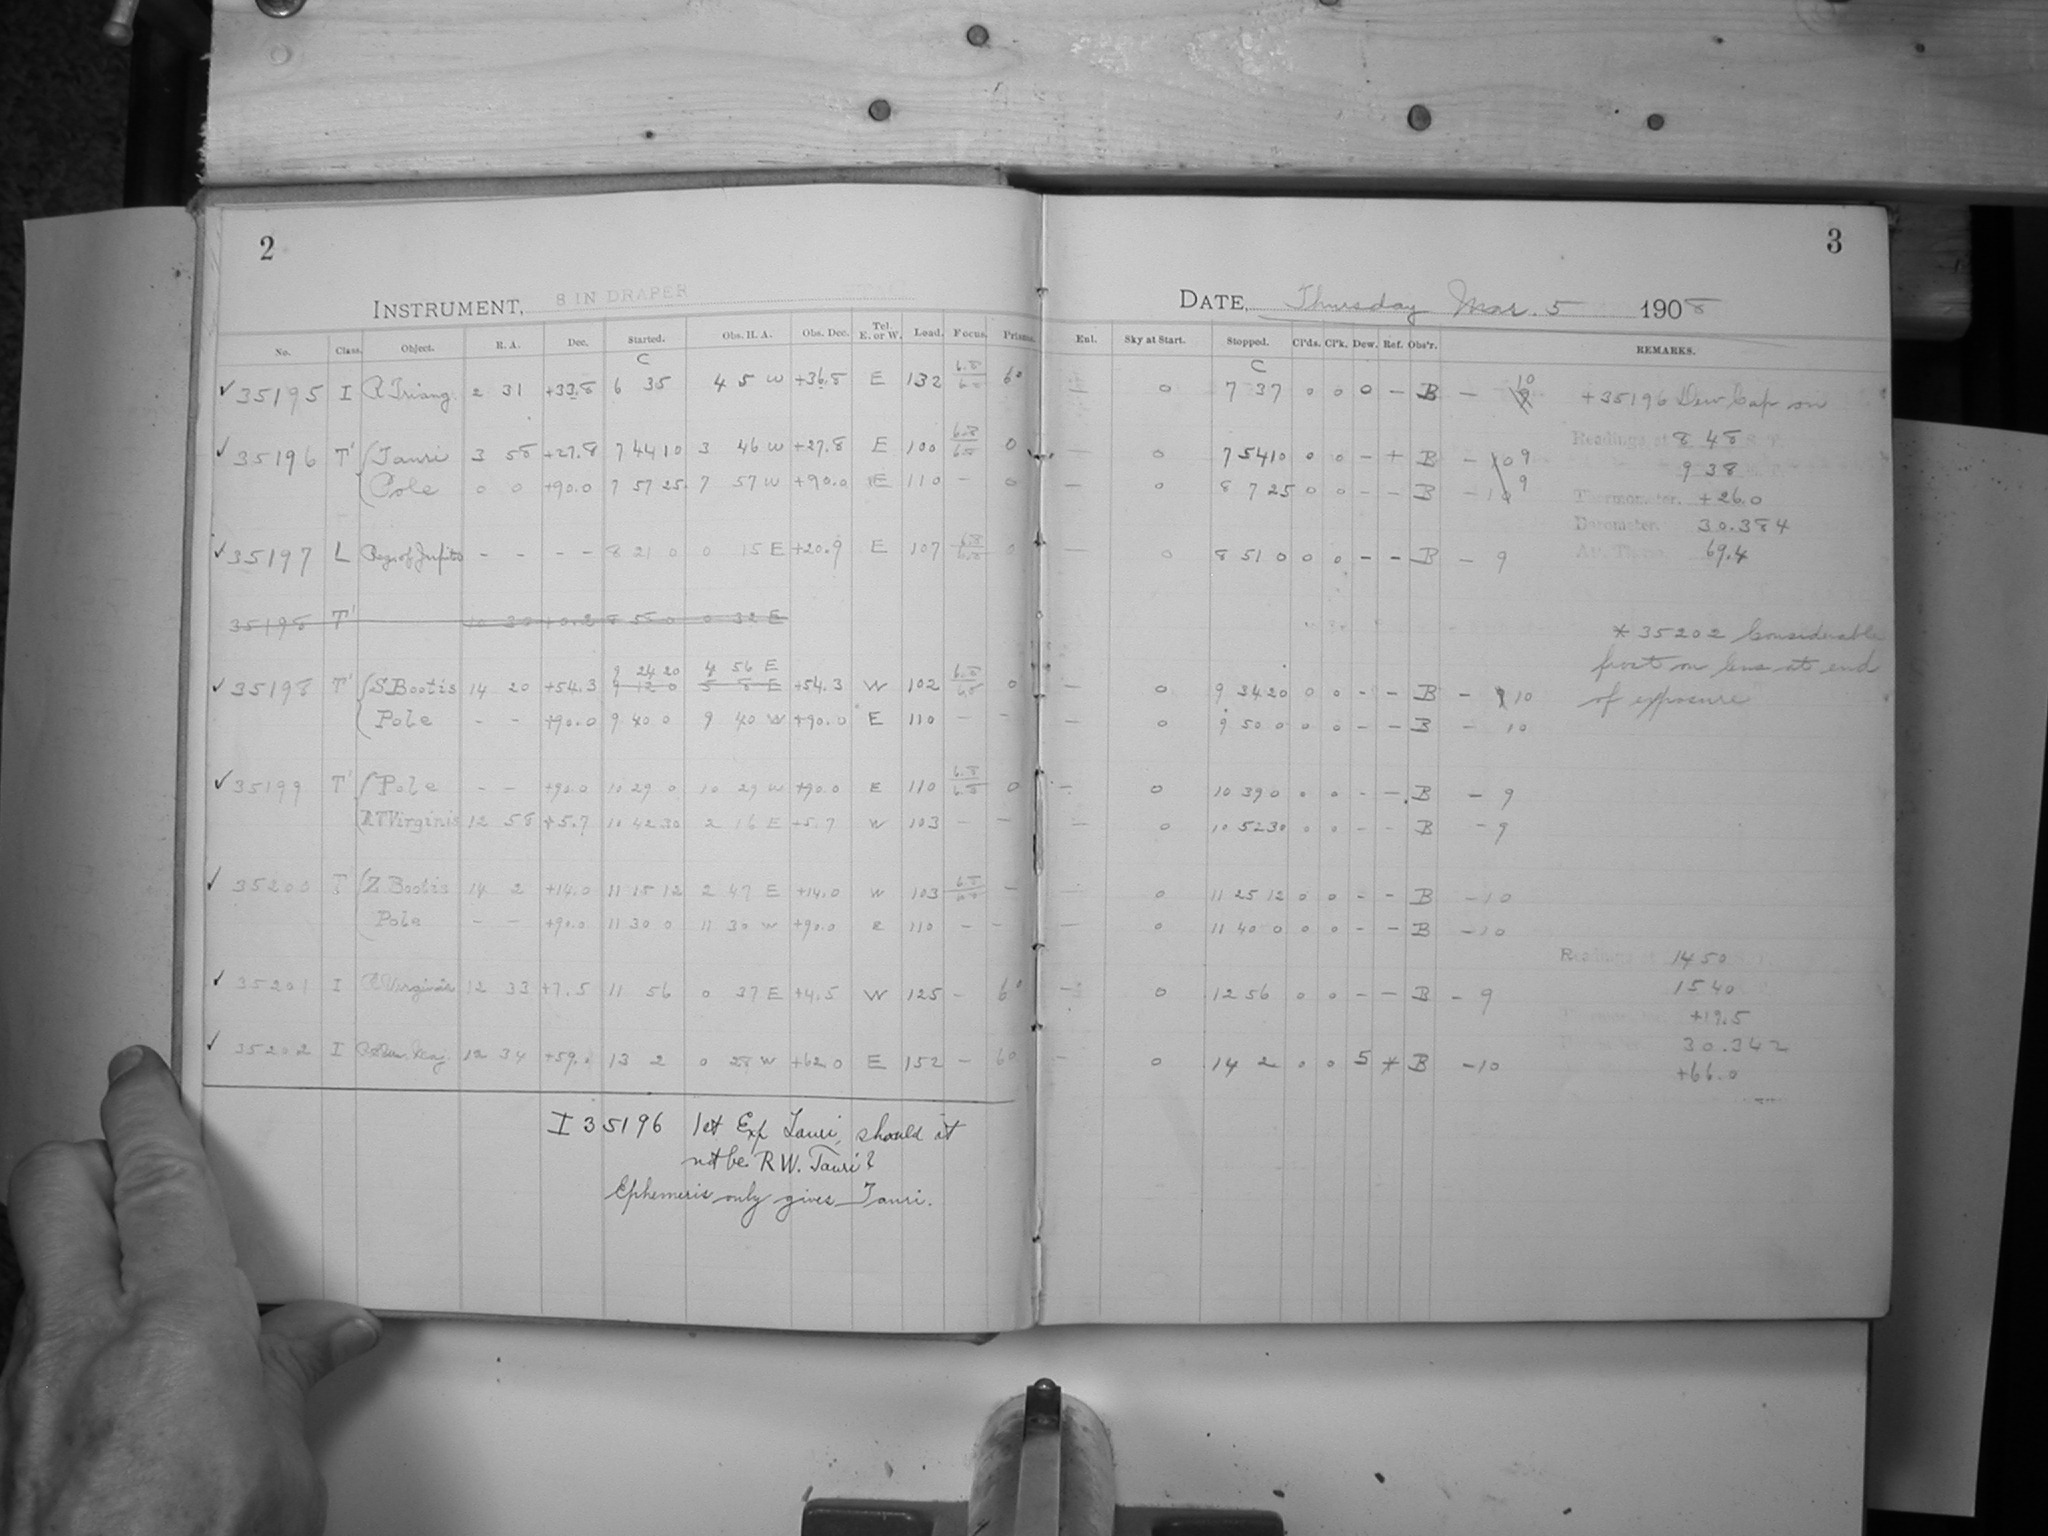 2
INSTRUMENT, 8 IN DRAPER
No. Class. Object. R. A. Dec. Started. Obs. H. A. Obs. Dec. Tel. E. or W. Load. Focus. Prisms.
C
✓ 35195 I R Triang. 2 31 +33.8 6 35 4 5 W +36.8 E 132 6.8 60
✓ 35196 T' Tauri 3 58 +27.8 7 44 10 3 46 W +27.8 E 100 6.8 0
Pole 0 0 +90.0 7 57 25 7 57 W +90.0 E 110 – 0
✓ 35197 L Reg. of Jupiter – – – – 8 21 0 0 15 E +20.9 E 107 6.8 0
35198 T' 8 58 0 0 32 E
9 24 20 4 56 E
✓ 35198 T' S. Bootis 14 20 +54.3 9 12 0 5 8 E +54.3 W 102 6.8 0
Pole – – +90.0 9 40 0 9 40 W +90.0 E 110 – –
✓ 35199 T' Pole – – +90.0 10 29 0 10 29 W +90.0 E 110 6.8 0
RT Virginis 12 58 +5.7 10 42 30 2 16 E +5.7 W 103 – –
✓ 35200 T' Z. Bootis 14 2 +14.0 11 15 12 2 47 E +14.0 W 103 6.8 –
Pole – – +90.0 11 30 0 11 30 W +90.0 E 110 – –
✓ 35201 I R Virginis 12 33 +7.5 11 56 0 37 E +4.5 W 125 – 60
✓ 35202 I 12 34 +59. 13 2 0 28 W +62.0 E 152 – 60
I 35196 1st Exp Tauri, should it
not be RW. Tauri?
Ephemeris only gives Tauri.
3
DATE, Thursday Mar. 5 1908
Enl. Sky at Start. Stopped. Cl'ds. Cl'k. Dew. Ref. Obs'r. REMARKS.
C
– 0 7 37 0 0 0 – B – 10 + 35196 Dew Cap on
– 0 7 54 10 0 0 – + B – 9 Readings at 8 48
9 38
– 0 8 7 25 0 0 – – B – 9 Thermometer. +26.0
Barometer. 30.384
– 0 8 51 0 0 0 – – B – 9 Att. Therm. 69.4
* 35202 Considerable
frost on lens at end
– 0 9 34 20 0 0 – – B – 10 of exposure
– 0 9 50 0 0 0 – – B – 10
– 0 10 39 0 0 0 – – B – 9
– 0 10 52 30 0 0 – – B – 9
– 0 11 25 12 0 0 – – B – 10
– 0 11 40 0 0 0 – – B – 10
Readings 14 50
– 0 12 56 0 0 – – B – 9 15 40
+19.5
30.342
– 0 14 2 0 0 5 * B – 10 +66.0